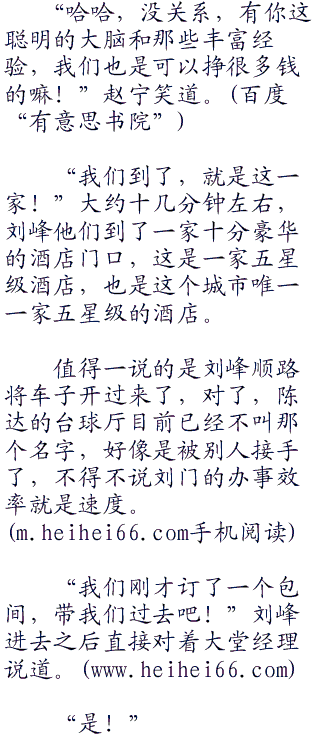 “哈哈，没关系，有你这
聪明的大脑和那些丰富经
验，我们也是可以挣很多钱
的嘛！”赵宁笑道。(百度
“有意思书院”)
“我们到了，就是这一
家！”大约十几分钟左右，
刘峰他们到了一家十分豪华
的酒店门口，这是一家五星
级酒店，也是这个城市唯一
一家五星级的酒店。
值得一说的是刘峰顺路
将车子开过来了，对了，陈
达的台球厅目前已经不叫那
个名字，好像是被别人接手
了，不得不说刘门的办事效
率就是速度。
(m.heihei66.com手机阅读)
“我们刚才订了一个包
间，带我们过去吧！”刘峰
进去之后直接对着大堂经理
说道。(www.heihei66.com)
“是！”